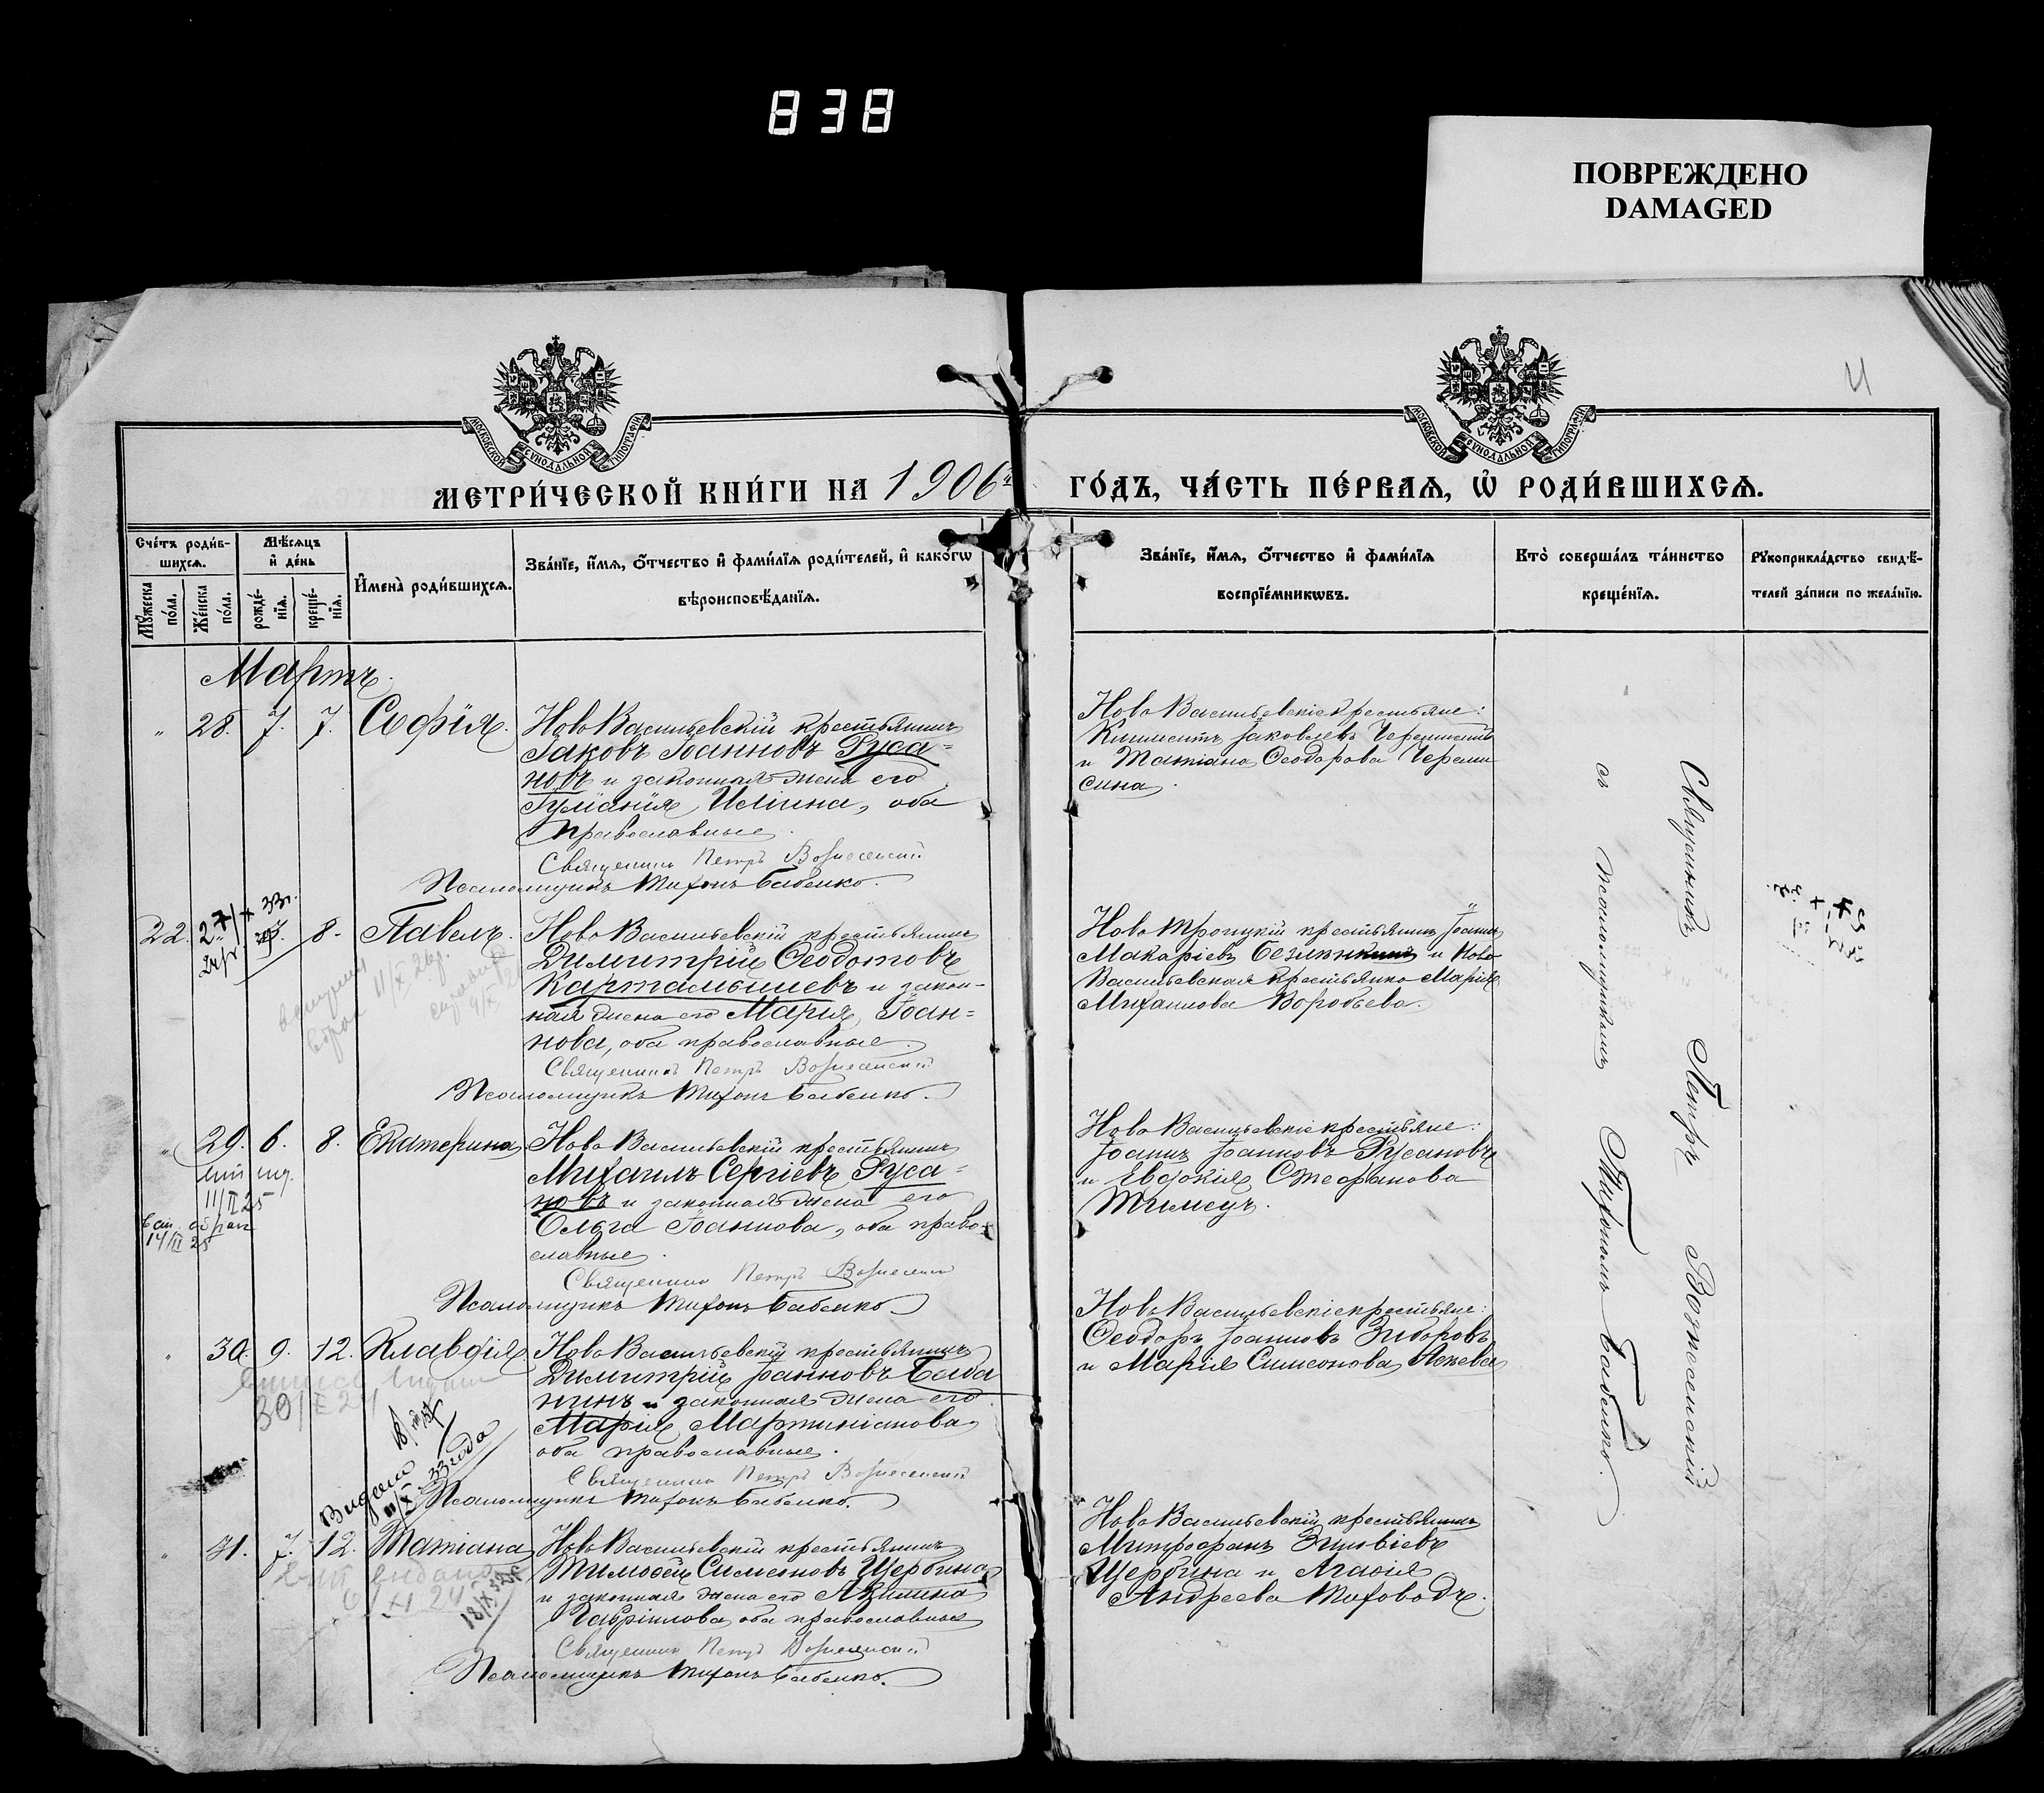 838
ПОВРЕЖДЕНО
DAMAGED
МОСКОВСКОЙ СѴНОДАЛЬНОЙ ТИПОГРАФІИ
МОСКОВСКОЙ СѴНОДАЛЬНОЙ ТИПОГРАФІИ
МЕТРИ́ЧЕСКОЙ КНИ́ГИ НА 1906й ГО́ДЪ, ЧА́СТЬ ПЕ́РВАѦ, Ѡ҆ РОДИ́ВШИХСѦ.
Сче́тъ роди́в-
шихсѧ.
Мꙋ́жеска по́ла.
Же́нска по́ла.
Мѣ́сѧцъ и҆ де́нь
рожде́-
нїѧ.
креще́-
нїѧ.
И҆мена̀ роди́вшихсѧ.
Зва́нїе, и҆́мѧ, ѻ҆́тчество и҆ фами́лїѧ роди́телей, и҆ како́гѡ
вѣроисповѣ́данїѧ.
Зва́нїе, и҆́мѧ, ѻ҆́тчество и҆ фами́лїѧ
воспрїе́мникѡвъ.
Кто̀ соверша́лъ та́инство
креще́нїѧ.
Рꙋкоприкла́дство свидѣ́-
телей за́писи по жела́нїю.
Мартъ.
" 28. 7. 7. Софія. Ново Васильевскій крестьянинъ
Іаковъ Іоанновъ Руса=
новъ и законная жена его
Іуліанія Ильина, оба
православные.
Священникъ Петръ Вознесенскій
Псаломщикъ Тихонъ Бабенко.
Ново Васильевскіе крестьяне:
Климентъ Іаковлевъ
и Татіана Ѳеодорова Череми
сина.
22. " 8. Павелъ. Ново Васильевскій крестьянинъ
Димитрій Ѳеодотовъ
Картамышевъ и закон-
ная жена его Марія Іоан=
нова, оба православные.
Священникъ Петръ Вознесенскій
Псаломщикъ Тихонъ Бабенко.
Ново Троицкій крестьянинъ Іоаннъ
Макаріевъ и Ново
Васильевская крестьянка Марія
Михаилова Воробьева.
" 29. 6. 8. Екатерина Ново Васильевскій крестьянинъ
Михаилъ Сергіевъ Руса=
новъ и законная жена его
Ольга Іоаннова, оба право-
славные.
Священникъ Петръ Вознесенскій
Псаломщикъ Тихонъ Бабенко
11/II 25
14/II 25
Ново Васильевскіе крестьяне:
Іоаннъ Іоанновъ Русановъ
и Евдокія Стефанова
" 30. 9. 12. Клавдія Ново Васильевскій крестьянинъ
Димитрій Іоанновъ Баба
нинъ и законная жена его
Марія Мартиніанова
оба православные.
Священникъ Петръ Вознесенскій
Псаломщикъ Тихонъ Бабенко.
Ново Васильевскіе крестьяне:
Ѳеодоръ Іоанновъ Зиборовъ
и Марія Симеонова
" 31. 7. 12. Татіана Ново Васильевскій крестьянинъ
Тимоѳей Симеоновъ Щербина
и законная жена его Акилина
Гавріилова оба православные
Священникъ Петръ Вознесенскій
Псаломщикъ Тихонъ Бабенко.
Ново Васильевскій крестьянинъ
Митрофанъ Зиновіевъ
Щербина и Агаѳія
Андреева
Священникъ Петръ Вознесенскій
съ псаломщикомъ Тихономъ Бабенко.